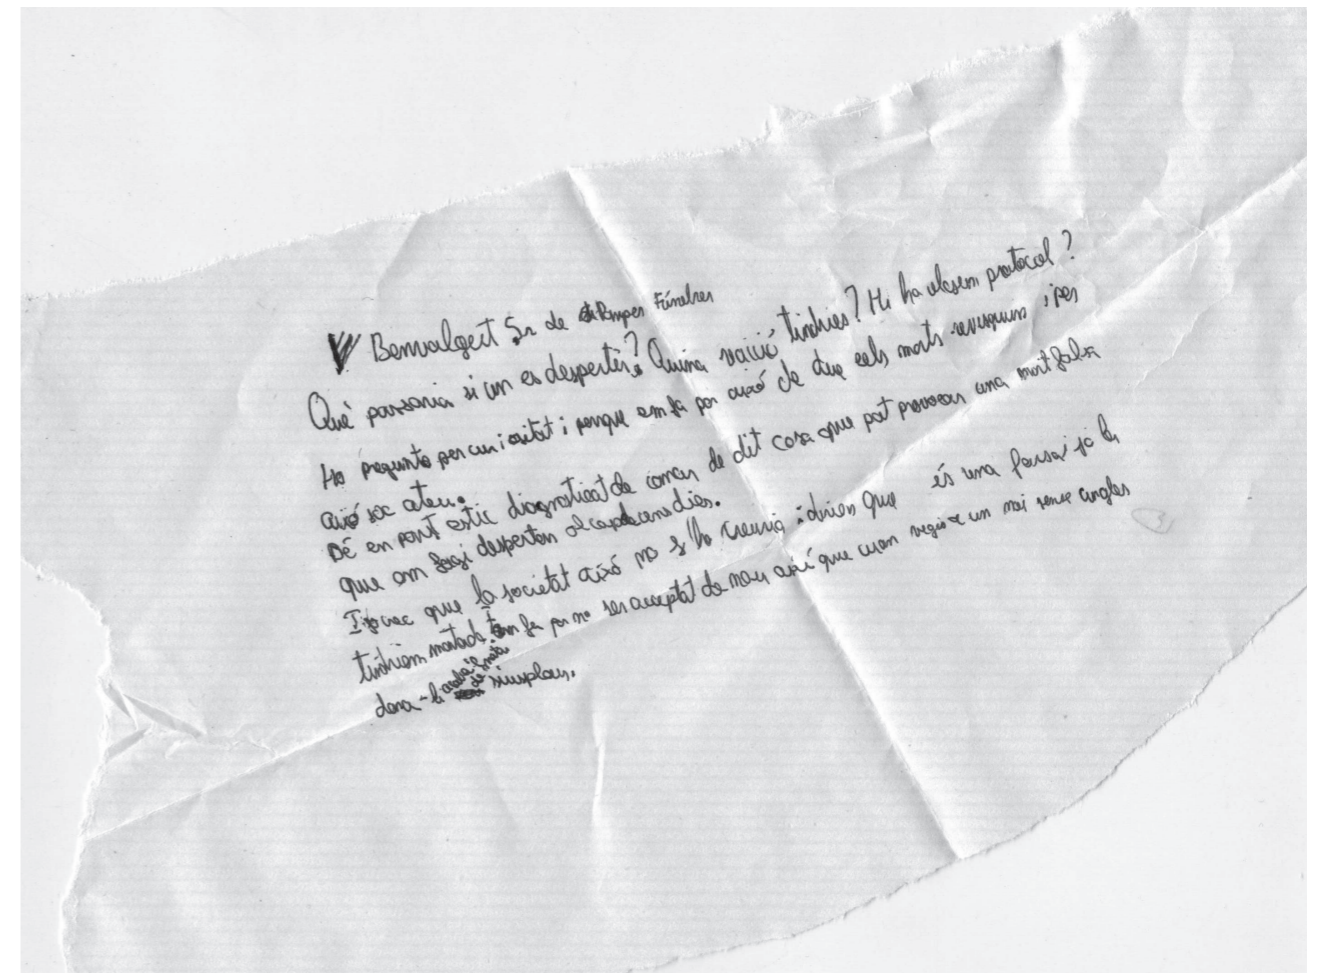 Benvolgut Sr de Pompes Fúnebres
Qué passaria si un es despertés? Quina reacció tindries? Hi ha algun protocol?
Ho pregunto per curiositat i perque em fa por això de que els morts revisquin i per
això soc ateu.
Bé en part estic diagnosticat de càncer de dit cosa que pot provocar una mort falsa
que em faci despertar al cap de uns dies.
I jo crec que la societat això no s'ho creuria i dirien que és una farsa i ja la
tindriem montada. Em fa por no ser acceptat de nou així que quan vegis a un noi sense ungles
dona-li de simsplau.